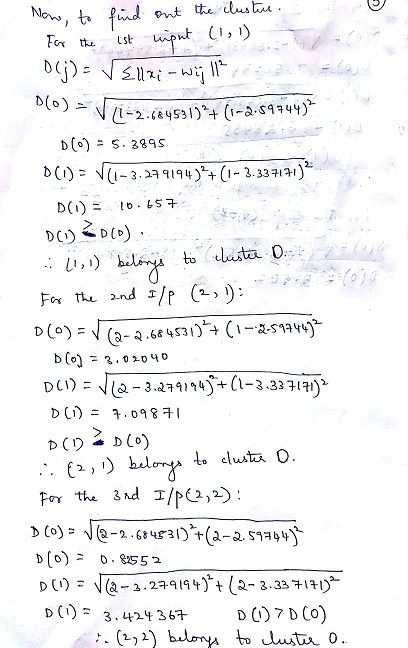 5
Now, to find out the cluster.
For the 1st input (1,1)
D(j) = √Σ||xi - wij||²
D(0) = √(1-2.684531)²+(1-2.59744)²
D(0) = 5.3895
D(1) = √(1-3.279194)²+(1-3.337171)²
D(1) = 10.657
D(1) > D(0).
∴ (1,1) belongs to cluster 0.
For the 2nd I/p (2,1):
D(0) = √(2-2.684531)²+(1-2.59744)²
D(0) = 3.02040
D(1) = √(2-3.279194)²+(1-3.337171)²
D(1) = 7.09871
D(1) > D(0)
∴ (2,1) belongs to cluster 0.
For the 3rd I/p(2,2):
D(0) = √(2-2.684531)²+(2-2.59744)²
D(0) = 0.82552
D(1) = √(2-3.279194)²+(2-3.337171)²
D(1) = 3.424367 D(1)>D(0)
∴ (2,2) belongs to cluster 0.